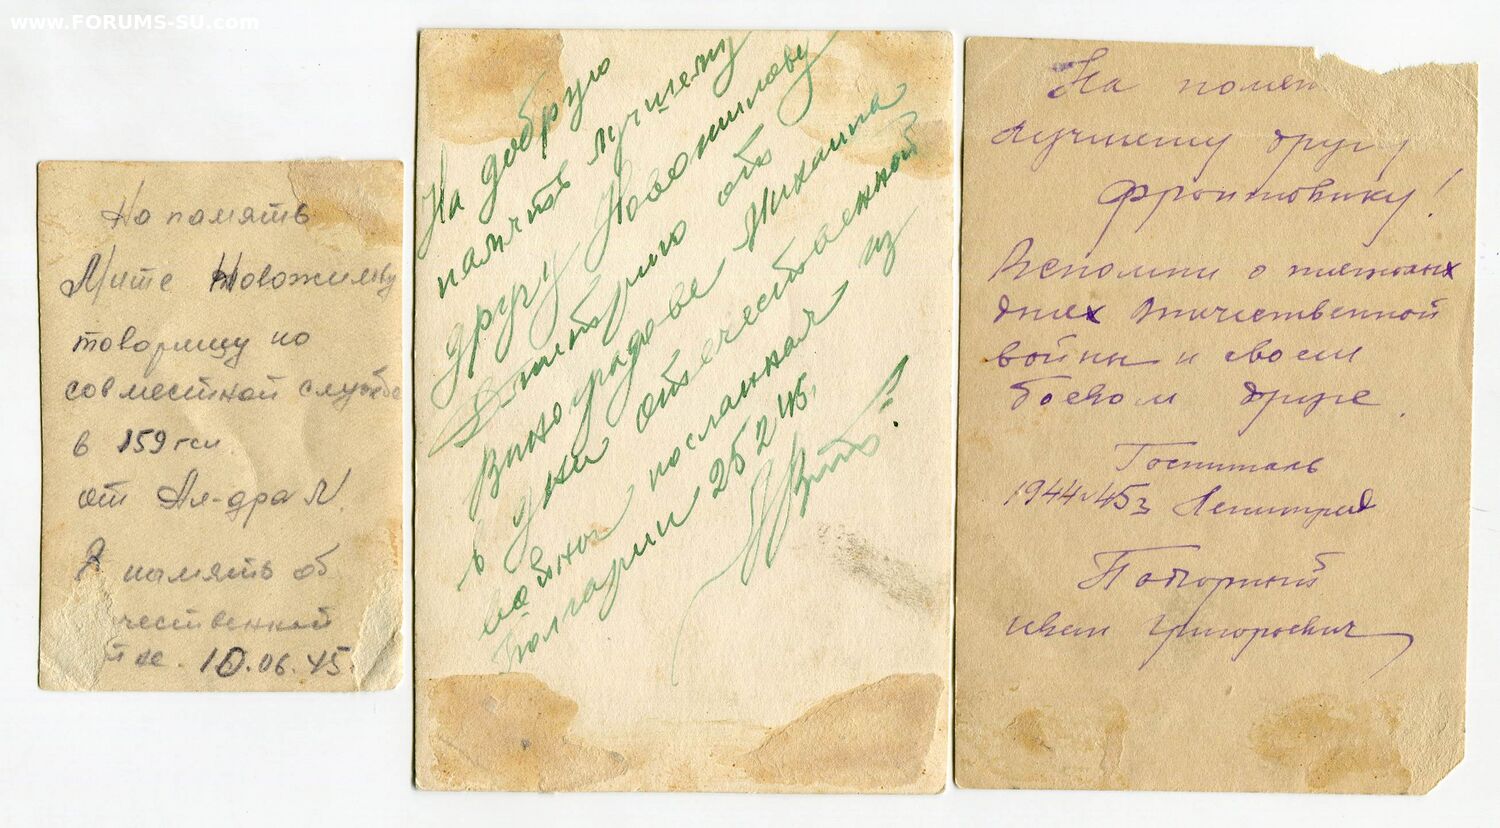 www.FORUMS-SU.com
На память
Мите Новожилову
товарищу по
совместной службе
в 159 гсп.
от Ал-дра М.
В память об
чественной
йне. 10.06.45.
На добрую
память лучшему
другу Новожилову
Дмитрию от
Виноградова Михаила
в дни отечественной
войны посланная из
Болгарии 25 2 45.
На помят
Лучшему другу
фронтовику!
Вспомни о тяжолых
днях Отечественной
войны и своем
боевом друге.
Госпиталь
1944-45г Ленинград
Иван Григорьевич